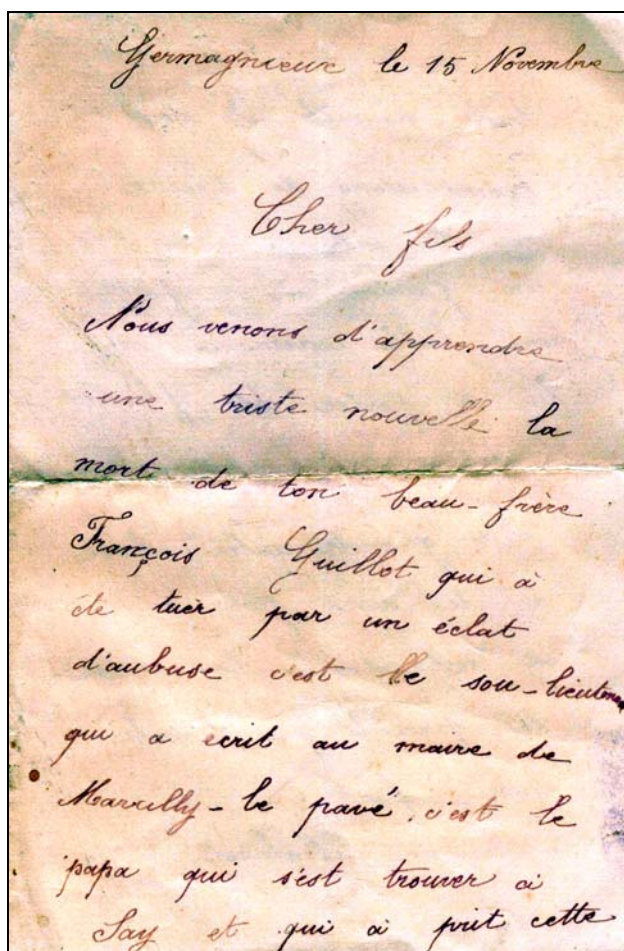 Germagnieux le 15 Novembre
Cher fils
Nous venons d'apprendre
une triste nouvelle la
mort de ton beau-frère
François Guillot qui à
éte tuer par un éclat
d'aubuse c'est le sou-lieutenan
qui a ecrit au maire de
Marcilly-le pavé. c'est le
papa qui s'est trouver à
Say et qui à prit cette